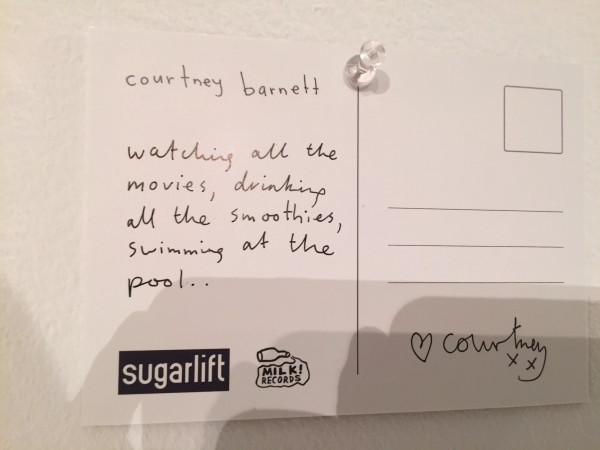 courtney barnett
watching all the
movies, drinking
all the smoothies,
swimming at the
pool..
sugarlift
MILK!
RECORDS
♡ courtney
x x